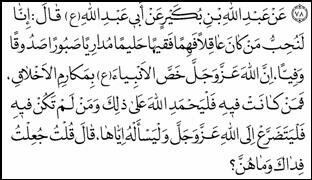 (٧٨) عَنْ عَبْدِ اللهِ بْنِ بُكَيْرٍ عَنْ أَبِي عَبْدِ اللهِ (ع) قَالَ: إِنَّا
لَنُحِبُّ مَنْ كَانَ عَاقِلاً فَهِمًا فَقِيهًا حَلِيمًا مُدَارِيًا صَبُورًا صَدُوقًا
وَفِيًّا. إِنَّ اللهَ عَزَّ وَجَلَّ خَصَّ الْأَنْبِيَاءَ (ع) بِمَكَارِمِ الْأَخْلَاقِ،
فَمَنْ كَانَتْ فِيهِ فَلْيَحْمَدِ اللهَ عَلَىٰ ذٰلِكَ وَمَنْ لَمْ تَكُنْ فِيهِ
فَلْيَتَضَرَّعْ إِلَى اللهِ عَزَّ وَجَلَّ وَلْيَسْأَلْهُ إِيَّاهَا. قَالَ قُلْتُ جُعِلْتُ
فِدَاكَ وَمَا هُنَّ؟